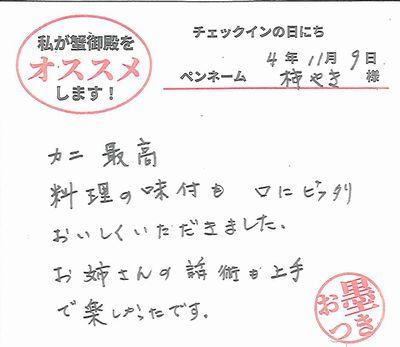 私が蟹御殿を
オススメ
します！
チェックインの日にち
4年11月9日
ペンネーム 柿やき 様
カニ 最高
料理の味付も 口にピッタリ
おいしくいただきました。
お姉さんの話術も上手
で楽しかったです。
お墨
つき